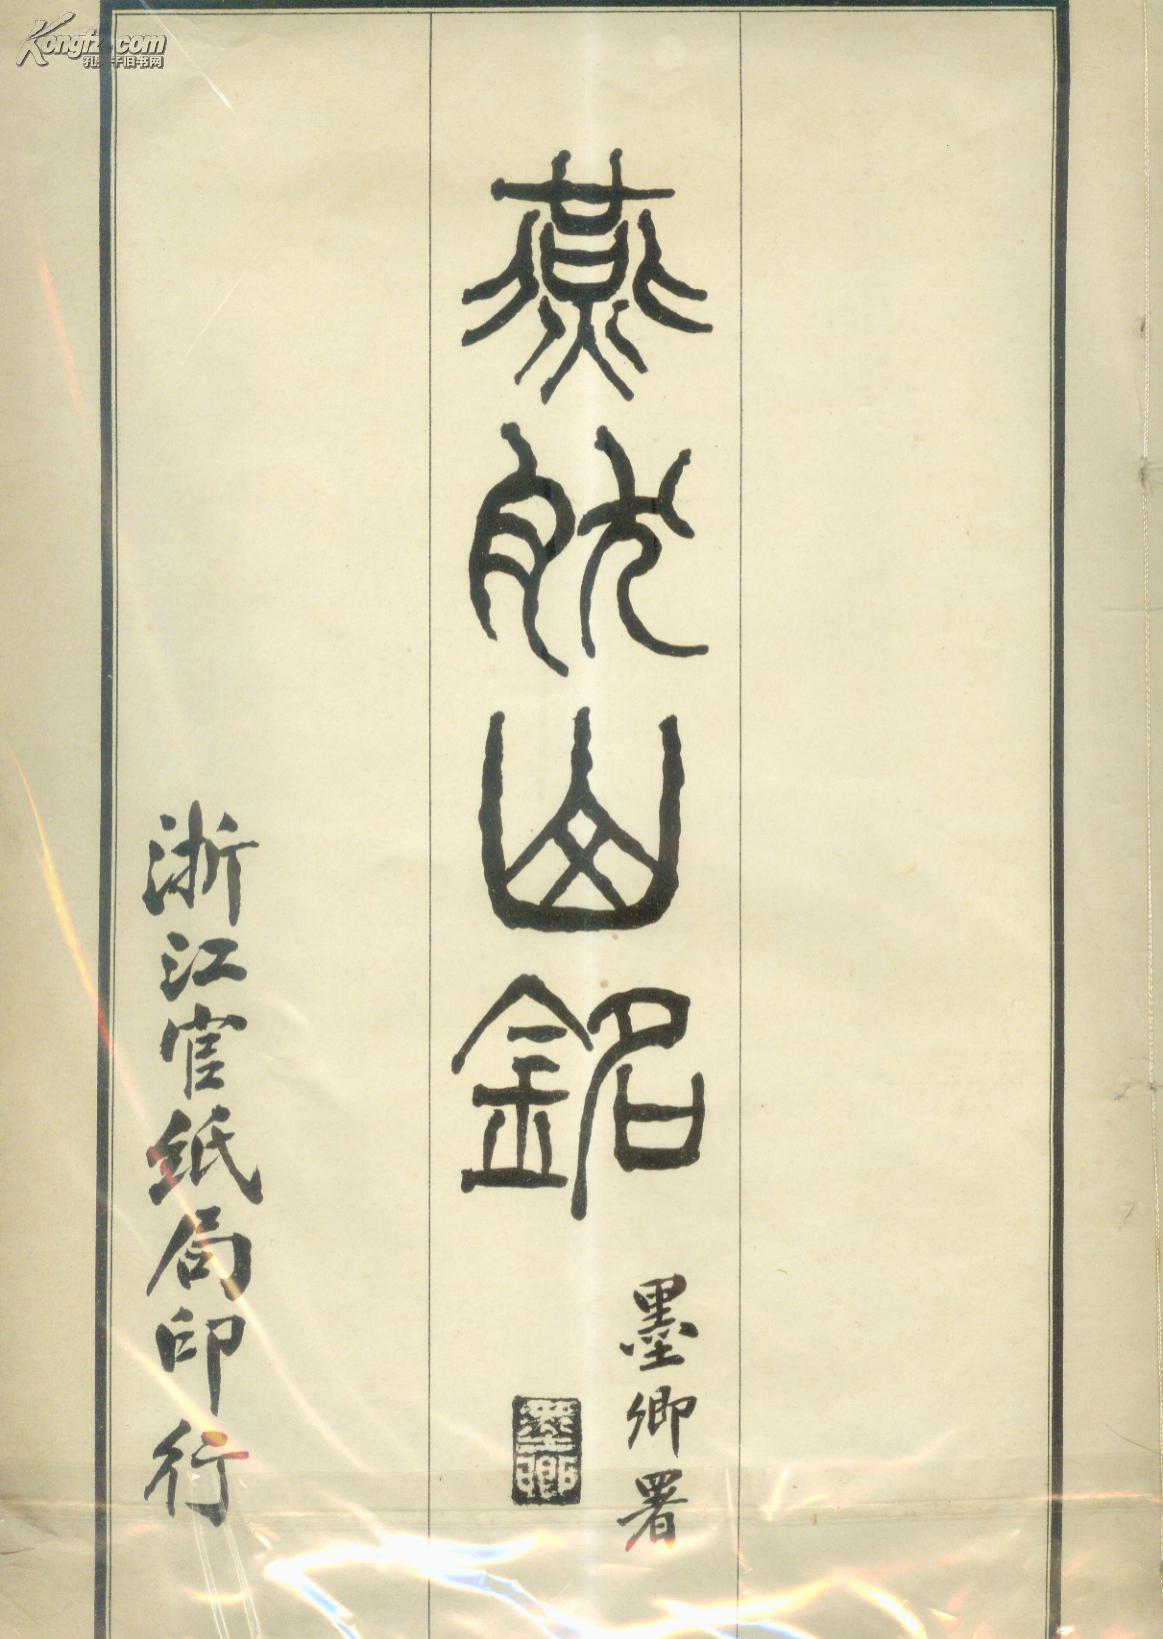 Kongfz.com
孔夫子旧书网
燕然山銘
墨卿署
墨卿
浙江官紙局印行